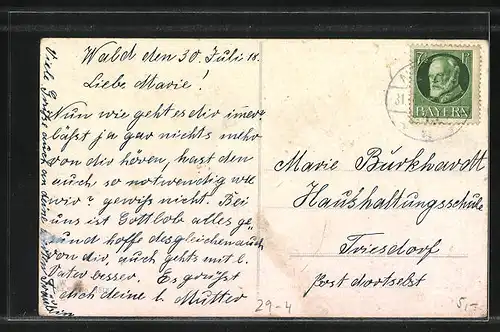 Wald den 30. Juli 18.
Liebe Marie!
Nun wie geht es dir immer
läßst ja gar nichts mehr
von dir hören, hast den
auch so notwendig wie
wir? gewiß nicht. Bei
uns ist Gottlob alles ge¬
sund hoffe desgleichen auch
von dir, auch gehts mit l.
Vater besser. Es grüßt
dich deine l. Mutter
Viele Grüße auch von deine
7 Pf
BAYERN
31.
Marie Burkhardt
Haushaltungsschule
Triesdorf
Post dortselbst
29-4
5,-